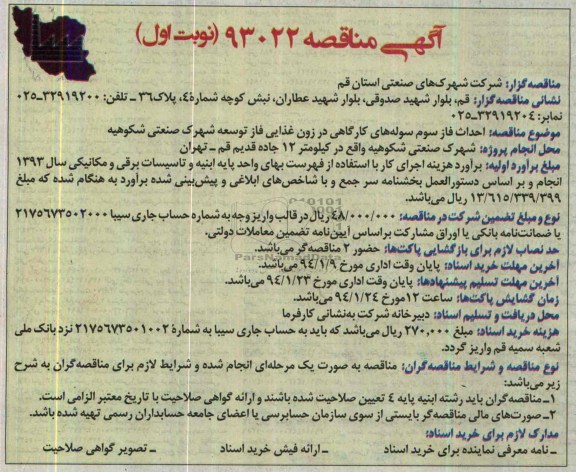 آگهی مناقصه ۹۳۰۲۲ (نوبت اول)
مناقصه‌گزار: شرکت شهرک‌های صنعتی استان قم
نشانی مناقصه‌گزار: قم، بلوار شهید صدوقی، بلوار شهید عطاران، نبش کوچه شمارۀ ۴، پلاک ۳۶ ـ تلفن: ۳۲۹۱۹۲۰۰-۰۲۵
نمابر: ۳۲۹۱۹۲۰۴-۰۲۵
موضوع مناقصه: احداث فاز سوم سوله‌های کارگاهی در زون غذایی فاز توسعه شهرک صنعتی شکوهیه
محل انجام پروژه: شهرک صنعتی شکوهیه واقع در کیلومتر ۱۲ جاده قدیم قم ـ تهران
مبلغ برآورد اولیه: برآورد هزینه اجرای کار با استفاده از فهرست بهای واحد پایه ابنیه و تاسیسات برقی و مکانیکی سال ۱۳۹۳
انجام و بر اساس دستورالعمل بخشنامه سر جمع و با شاخص‌های ابلاغی و پیش‌بینی شده برآورد به هنگام شده که مبلغ
۱۳/۶۱۵/۳۳۹/۳۹۹ ریال می‌باشد.
نوع و مبلغ تضمین شرکت در مناقصه: ۴۸۰/۰۰۰/۰۰۰ ریال در قالب واریز وجه به شماره حساب جاری سیبا ۲۱۷۵۶۷۳۵۰۲۰۰۰
یا ضمانت‌نامه بانکی یا اوراق مشارکت براساس آیین‌نامه تضمین معاملات دولتی.
حد نصاب لازم برای بازگشایی پاکت‌ها: حضور ۲ مناقصه‌گر می‌باشد.
آخرین مهلت خرید اسناد: پایان وقت اداری مورخ ۹۴/۱/۹ می‌باشد.
آخرین مهلت تسلیم پیشنهادها: پایان وقت اداری مورخ ۹۴/۱/۲۳ می‌باشد.
زمان گشایش پاکت‌ها: ساعت ۱۲ مورخ ۹۴/۱/۲۴ می‌باشد.
محل دریافت و تسلیم اسناد: دبیرخانه شرکت به‌نشانی کارفرما
هزینه خرید اسناد: مبلغ ۲۷۰,۰۰۰ ریال می‌باشد که باید به حساب جاری سیبا به شمارۀ ۲۱۷۵۶۷۳۵۰۱۰۰۲ نزد بانک ملی
شعبه سمیه قم واریز گردد.
نوع مناقصه و شرایط مناقصه‌گران: مناقصه به صورت یک مرحله‌ای انجام شده و شرایط لازم برای مناقصه‌گران به شرح
زیر می‌باشد:
۱ـ مناقصه‌گران باید رشته ابنیه پایه ۴ تعیین صلاحیت شده باشند و ارائه گواهی صلاحیت با تاریخ معتبر الزامی است.
۲ـ صورت‌های مالی مناقصه‌گر بایستی از سوی سازمان حسابرسی یا اعضای جامعه حسابداران رسمی تهیه شده باشد.
مدارک لازم برای خرید اسناد:
ـ نامه معرفی نماینده برای خرید اسناد ـ ارائه فیش خرید اسناد ـ تصویر گواهی صلاحیت
ParsNamadData